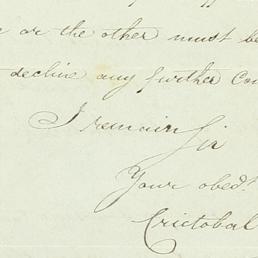 or the other must be
decline any further Con
I remain Sir
Your obed.t
Crictobal